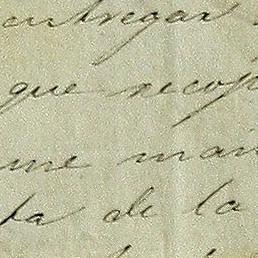 entregar
que recoj
me man
ta de la